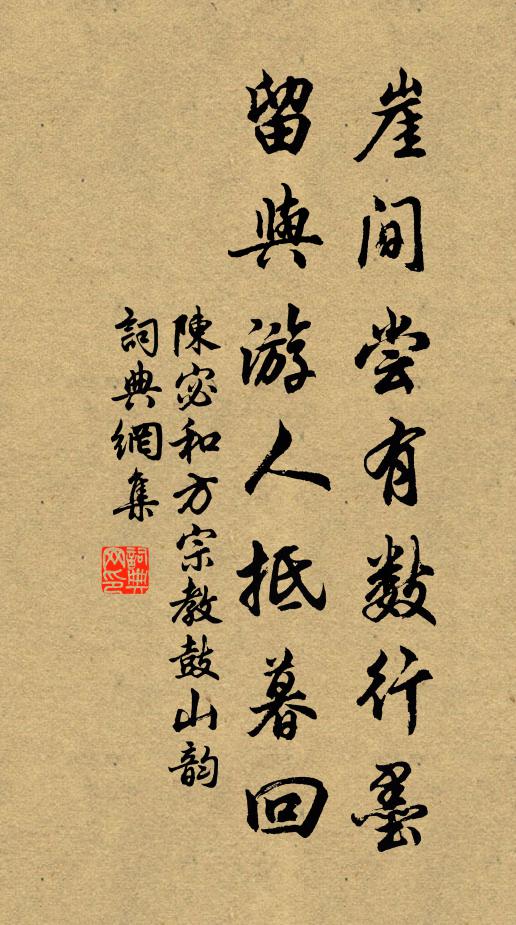 崖间尝有数行墨
留與游人抵暮回
陳宓和方宗教鼓山韵
詞典網集
詞典网印